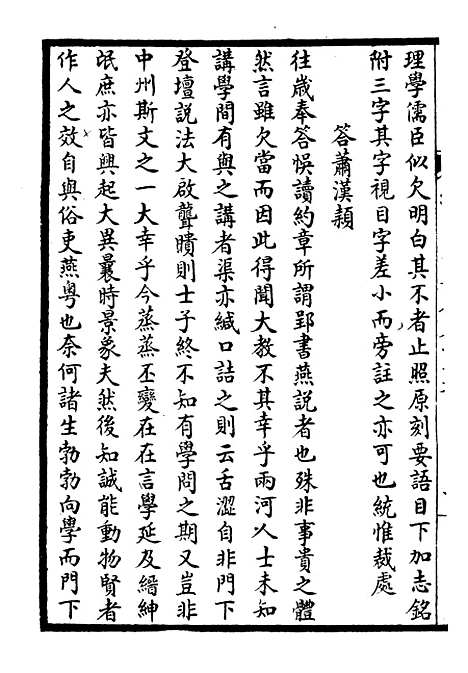 理學儒臣似欠明白其不者止照原刻要語目下加志銘
附三字其字視目字差小而旁註之亦可也統惟裁處
答蕭漢穎
往歲奉答悞讀約章所謂郢書燕說者也殊非事貴之體
然言雖欠當而因此得聞大教不其幸乎兩河人士未知
講學間有與之講者渠亦緘口詰之則云舌澀自非門下
登壇說法大啟聾聵則士子終不知有學問之期又豈非
中州斯文之一大幸乎今蒸蒸丕變在在言學延及縉紳
氓庶亦皆興起大異曩時景象夫然後知誠能動物賢者
作人之效自與俗吏燕粵也奈何諸生勃勃向學而門下